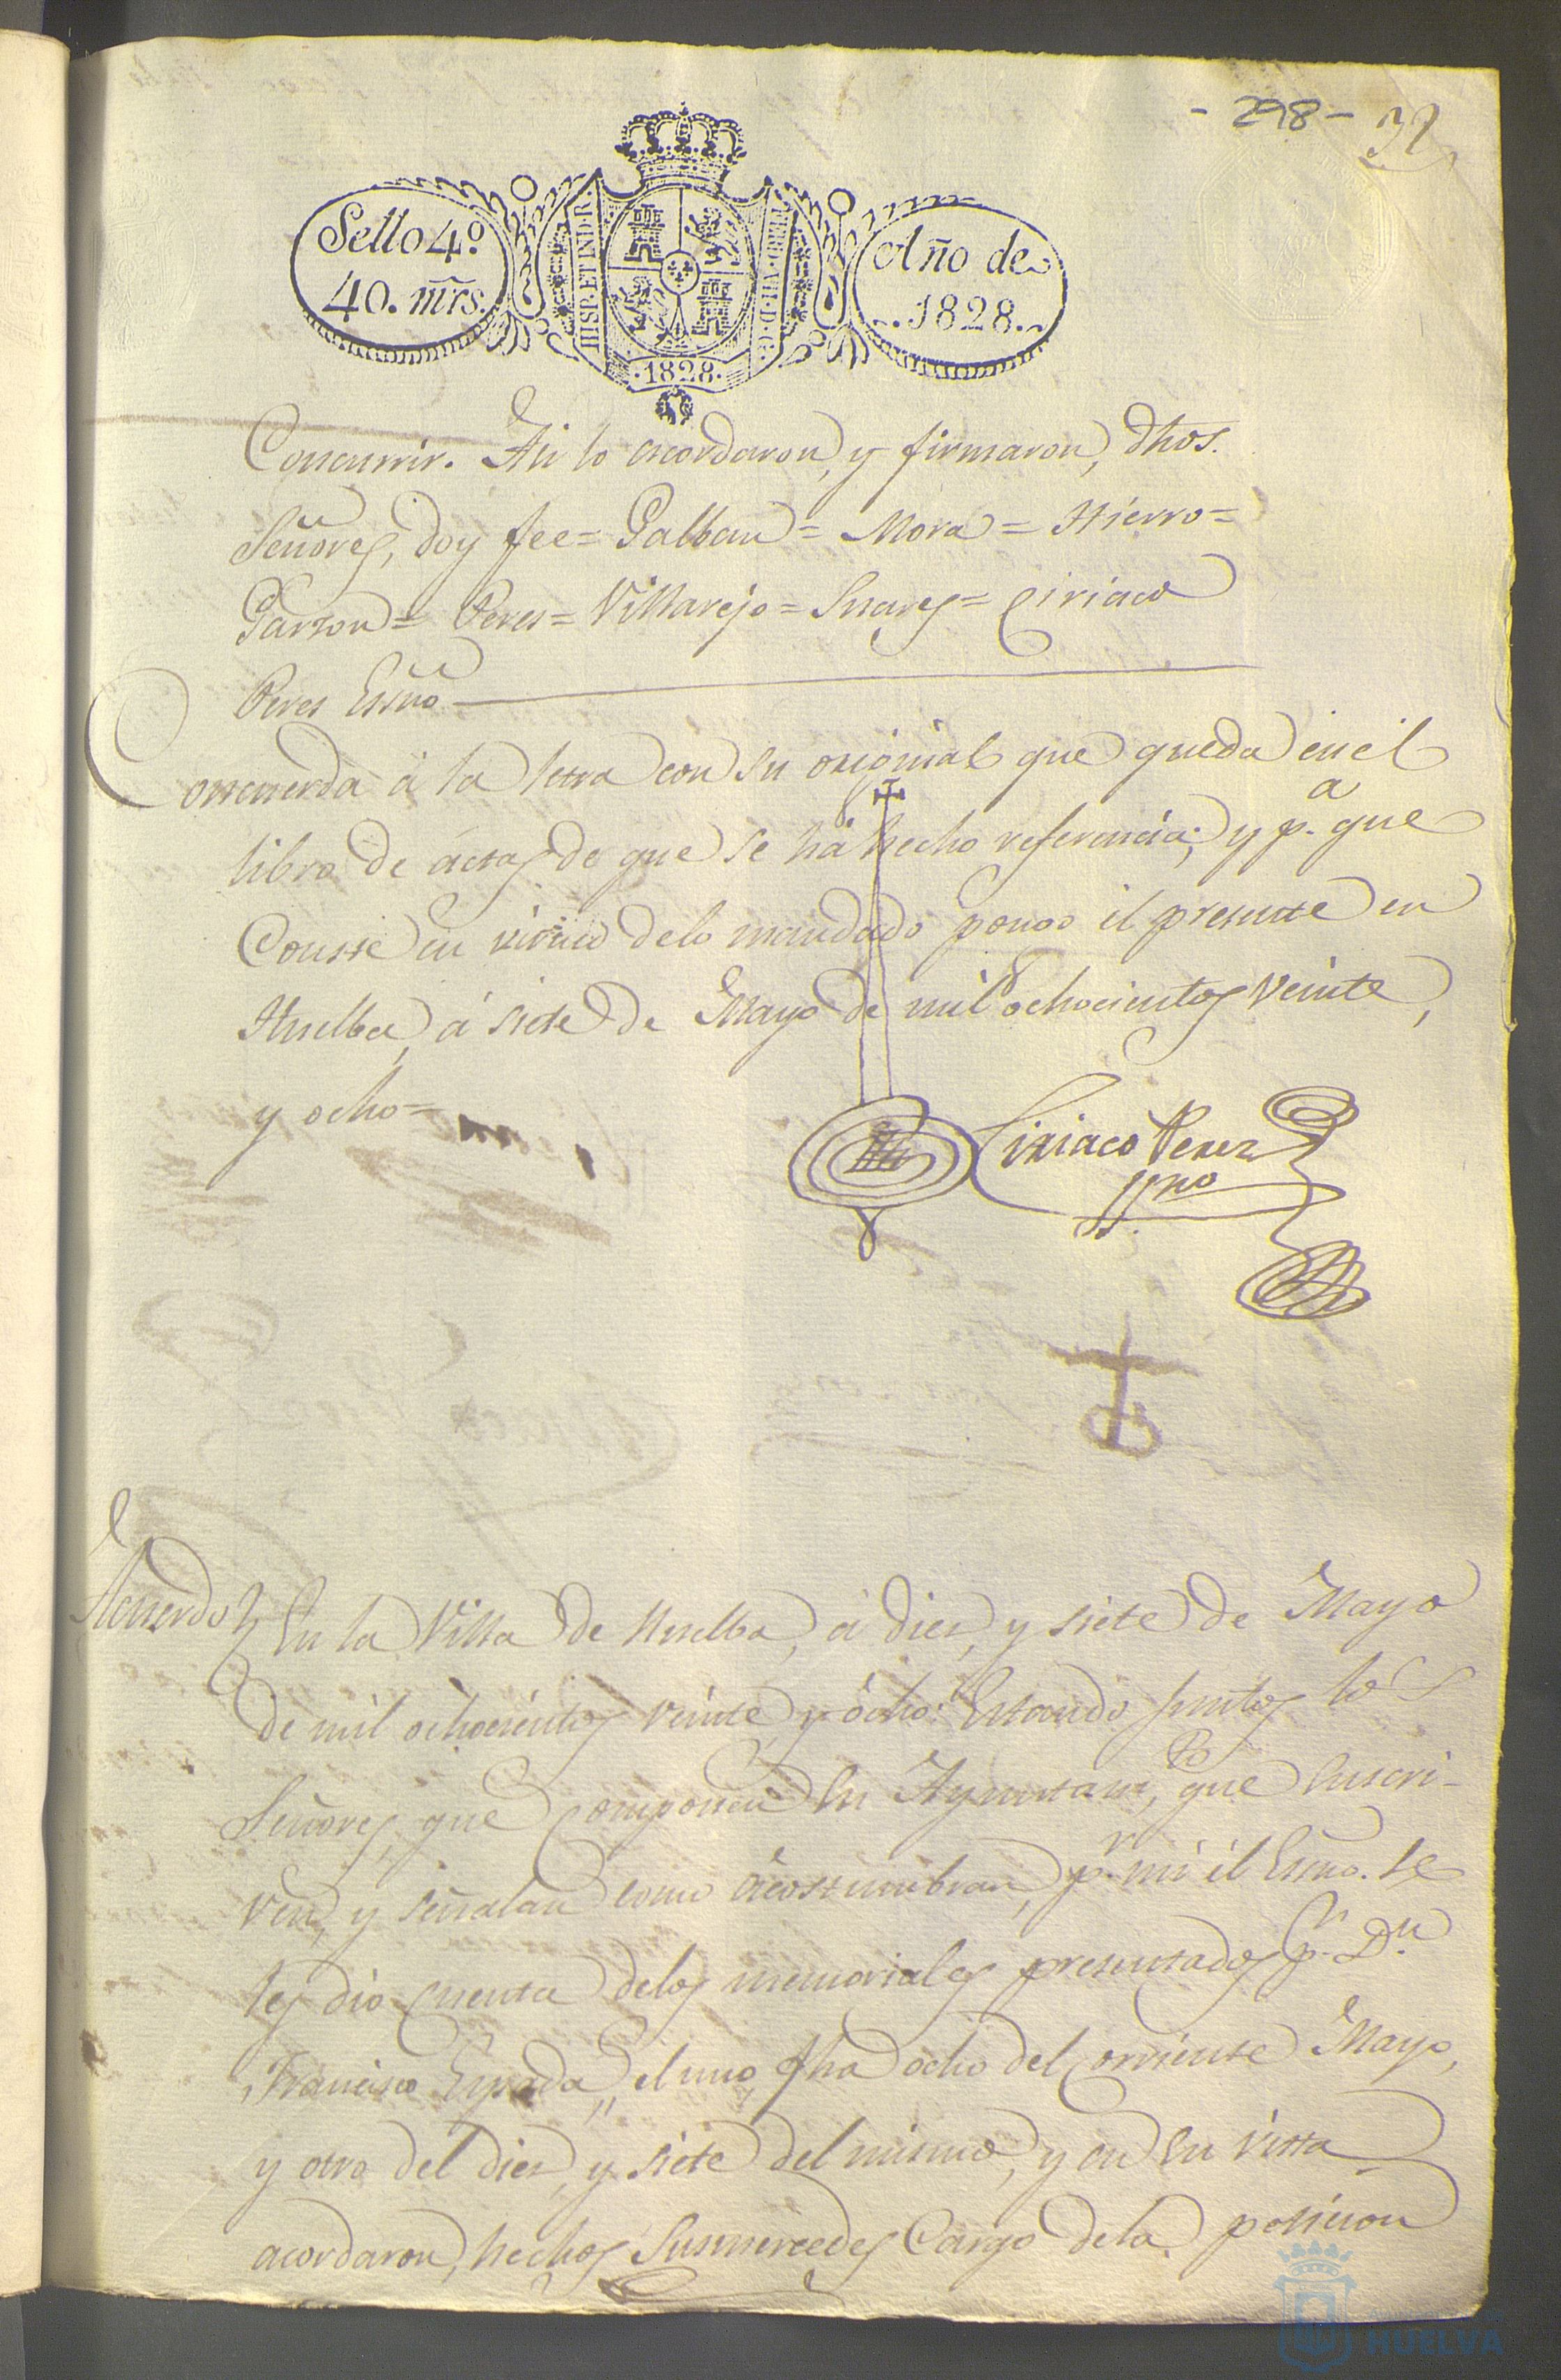 - 298 - 32
Sello 4º
40. mrs.
HISP. ET IND. R.
FERD. VII. D. G.
·1828·
Año de
1828.
Concurrir. Asi lo acordaron, y firmaron, dhos.
Señores, doy fee = Galban = Mora = Hierro =
Garzon = Peres = Villarejo = Suares = Ciriaco
Peres Essno
Concuerda á la letra con su original que queda en el
libro de actas de que se há hecho referencia; y p.a que
Conste en virtud delo mandado pongo el presente en
Huelba, á siete de Mayo de mil ochocientos veinte,
y ocho =
Ciriaco Perez
SSno
Acuerdo En la Villa de Huelba, á dies, y siete de Mayo
de mil ochocientos veinte, y ocho: Estando juntos los
Señores, que componen su Ayuntamto, que suscri-
ven, y señalan como acostumbran, p.r mi el Essno. se
les dio cuenta delos memoriales presentados p.r Dn
Francisco Espada,, el uno fha ocho del corriente Mayo,
y otro del dies, y siete del mismo, y en su vista
acordaron, hechos Susmercedes Cargo dela posicion
HUELVA